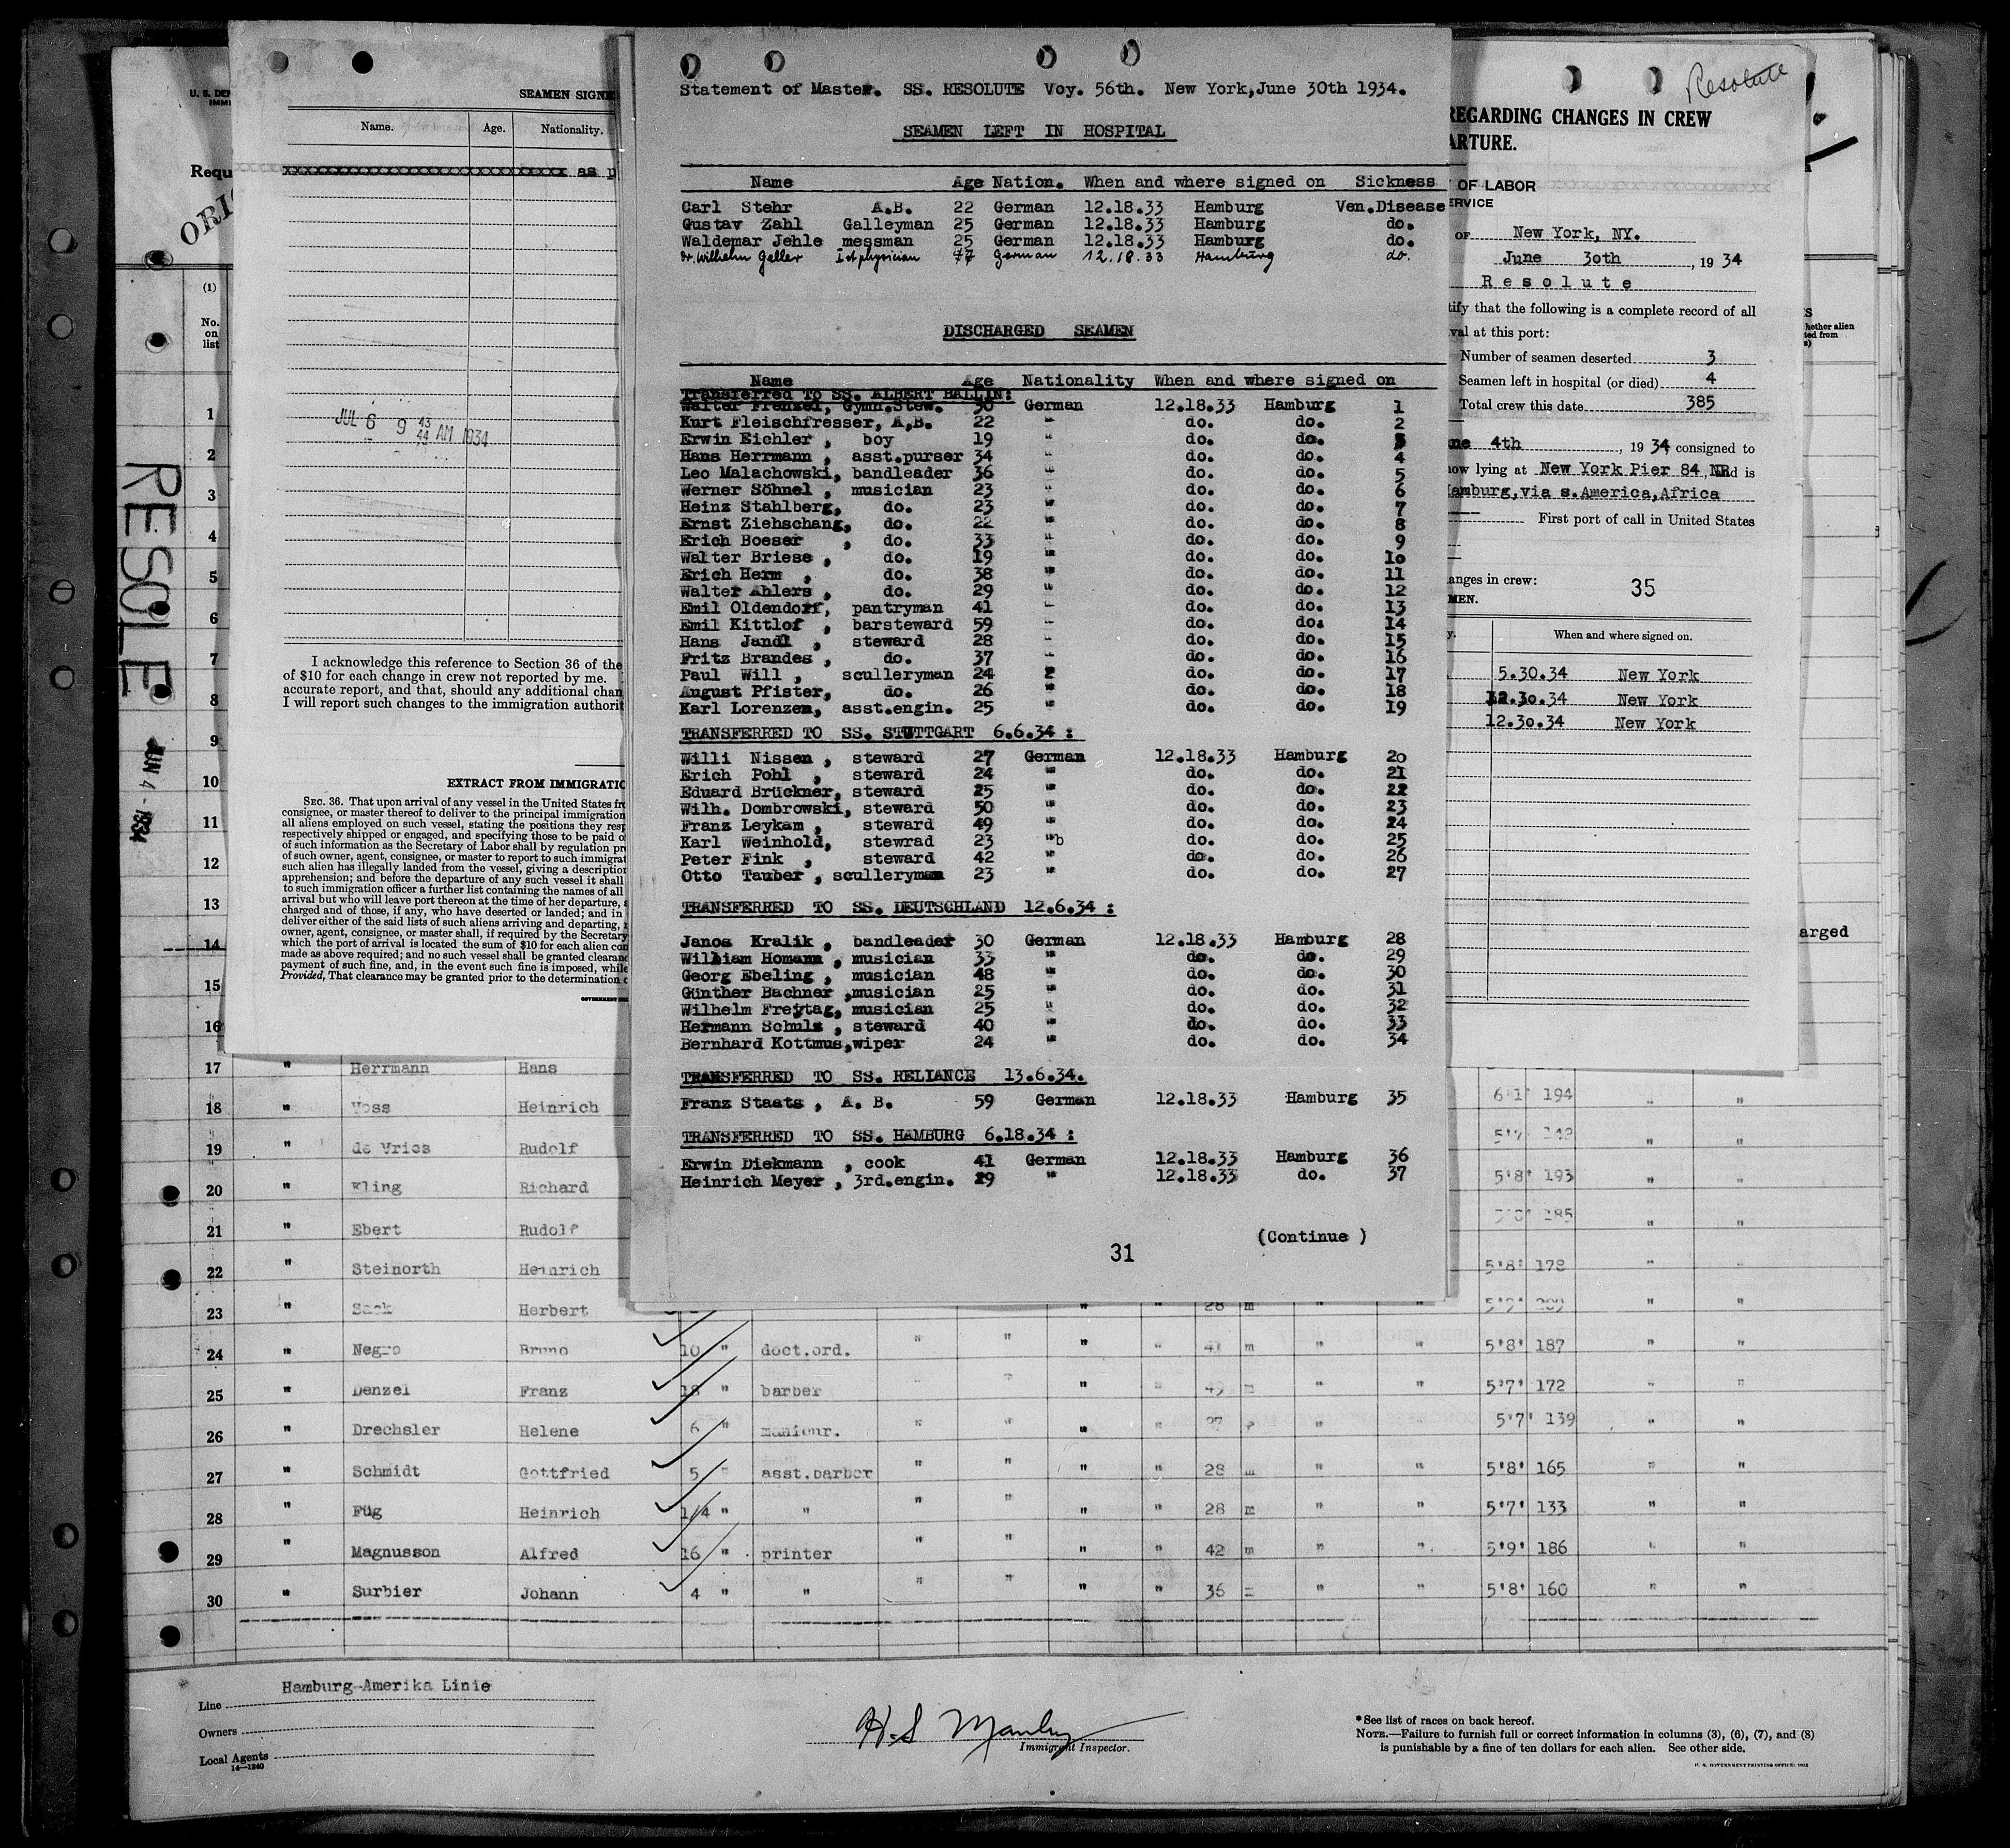 Statement of Master. SS. RESOLUTE Voy. 56th. New York,June 30th 1934.
SEAMEN LEFT IN HOSPITAL
Name Age Nation. When and where signed on Sickness
Carl Stehr A.B. 22 German 12.18.33 Hamburg Ven.Disease
Gustav Zahl Galleyman 25 German 12.18.33 Hamburg do.
Waldemar Jehle messman 25 German 12.18.33 Hamburg do.
Dr. Wilhelm Geller I st physician German 12.18.33 Hamburg do.
DISCHARGED SEAMEN
Name Age Nationality When and where signed on
Transferred To SS. ALBERT BALLIN:
Walter Frenzel, Gymn.Stew. 30 German 12.18.33 Hamburg 1
Kurt Fleischfresser, A,B. 22 " do. do. 2
Erwin Eichler , boy 19 " do. do. 3
Hans Herrmann , asst.purser 34 " do. do. 4
Leo Malachowski, bandleader 36 " do. do. 5
Werner Söhnel , musician 23 " do. do. 6
Heinz Stahlberg, do. 23 " do. do. 7
Ernst Ziehschang, do. 22 " do. do. 8
Erich Boeser , do. 33 " do. do. 9
Walter Briese , do. 19 " do. do. 1o
Erich Herm , do. 38 " do. do. 11
Walter Ahlers , do. 29 " do. do. 12
Emil Oldendorf, pantryman 41 " do. do. 13
Emil Kittlof , barsteward 59 " do. do. 14
Hans Jandl , steward 28 " do. do. 15
Fritz Brandes , do. 37 " do. do. 16
Paul Will , sculleryman 24 " do. do. 17
August Pfister, do. 26 " do. do. 18
Karl Lorenzen, asst.engin. 25 " do. do. 19
TRANSFERRED TO SS. STUTTGART 6.6.34 :
Willi Nissen , steward 27 German 12.18.33 Hamburg 2o
Erich Pohl , steward 24 " do. do. 21
Eduard Brückner, steward 25 " do. do. 22
Wilh. Dombrowski, steward 50 " do. do. 23
Franz Leykam , steward 49 " do. do. 24
Karl Weinhold, stewrad 23 "b do. do. 25
Peter Fink , steward 42 " do. do. 26
Otto Tauber , sculleryman 23 " do. do. 27
TRANSFERRED TO SS. DEUTSCHLAND 12.6.34 :
Janos Kralik , bandleader 30 German 12.18.33 Hamburg 28
William Homann , musician 33 " do. do. 29
Georg Ebeling , musician 48 " do. do. 30
Günther Bachner ,musician 25 " do. do. 31
Wilhelm Freytag, musician 25 " do. do. 32
Hermann Schulz , steward 40 " do. do. 33
Bernhard Kottmus,wiper 24 " do. do. 34
TRANSFERRED TO SS. RELIANCE 13.6.34.
Franz Staats , A. B. 59 German 12.18.33 Hamburg 35
TRANSFERRED TO SS. HAMBURG 6.18.34 :
Erwin Diekmann , cook 41 German 12.18.33 Hamburg 36
Heinrich Meyer , 3rd.engin. 29 " 12.18.33 do. 37
(Continue )
31
U. S. DE
IMMI
Requ
ORI
RESOLE
JUN 4 - 1934
(1)
No.
on
list
SEAMEN SIGNE
Name. Age. Nationality.
xxxxxxxxxxxxxxxxxxxxxxxxxxx as p
JUL 6 9 43 44 AM 1934
I acknowledge this reference to Section 36 of the
of $10 for each change in crew not reported by me.
accurate report, and that, should any additional chan
I will report such changes to the immigration authorit
EXTRACT FROM IMMIGRATIO
SEC. 36. That upon arrival of any vessel in the United States fr
consignee, or master thereof to deliver to the principal immigration
all aliens employed on such vessel, stating the positions they resp
respectively shipped or engaged, and specifying those to be paid o
of such information as the Secretary of Labor shall by regulation pr
of such owner, agent, consignee, or master to report to such immigrat
such alien has illegally landed from the vessel, giving a description
apprehension; and before the departure of any such vessel it shall
to such immigration officer a further list containing the names of all
arrival but who will leave port thereon at the time of her departure, a
charged and of those, if any, who have deserted or landed; and in
deliver either of the said lists of such aliens arriving and departing, r
owner, agent, consignee, or master shall, if required by the Secretary
which the port of arrival is located the sum of $10 for each alien con
made as above required; and no such vessel shall be granted clearanc
payment of such fine, and, in the event such fine is imposed, while
Provided, That clearance may be granted prior to the determination o
Resolute
REGARDING CHANGES IN CREW
ARTURE.
OF LABOR
ERVICE
OF New York, NY.
June 3oth , 19 34
Resolute
tify that the following is a complete record of all
val at this port:
Number of seamen deserted 3
Seamen left in hospital (or died) 4
Total crew this date 385
ne 4th , 19 34 consigned to
now lying at New York Pier 84, NR d is
Hamburg,via s.America,Africa
First port of call in United States
anges in crew: 35
MEN.
y. When and where signed on.
5.30.34 New York
12.3o.34 New York
12.3o.34 New York
hether alien
ted from
arged
1
2
3
4
5
6
7
8
9
10
11
12
13
14
15
16
17 " Herrmann Hans
18 " Voss Heinrich 6'1' 194 " "
19 " de Vries Rudolf " "
20 " Kling Richard 5'8' 193 " "
21 " Ebert Rudolf 185 " "
22 " Steinorth Heinrich 5'8' 178 " "
23 " Sack Herbert " " 28 m " " 5'9' 209 " "
24 " Negro Bruno 10 " doct.ord. " " " " 41 m " " 5'8' 187 " "
25 " Denzel Franz 18 " barber " " " " 49 m " " 5'7' 172 " "
26 " Drechsler Helene 6 " manicur. " " " " 27 " 5'7' 139 " "
27 " Schmidt Gottfried 5 " asst.barber " " " " 28 m " " 5'8' 165 " "
28 " Füg Heinrich 1/4 " " " " " " 28 m " " 5'7' 133 " "
29 " Magnusson Alfred 16 " printer " " " " 42 m " " 5'9' 186 " "
30 " Surbier Johann 4 " " " " " " 36 " " 5'8' 160 " "
Line Hamburg-Amerika Linie
Owners
Local Agents
14—1240
H.S Manley
Immigrant Inspector.
*See list of races on back hereof.
NOTE.—Failure to furnish full or correct information in columns (3), (6), (7), and (8)
is punishable by a fine of ten dollars for each alien. See other side.